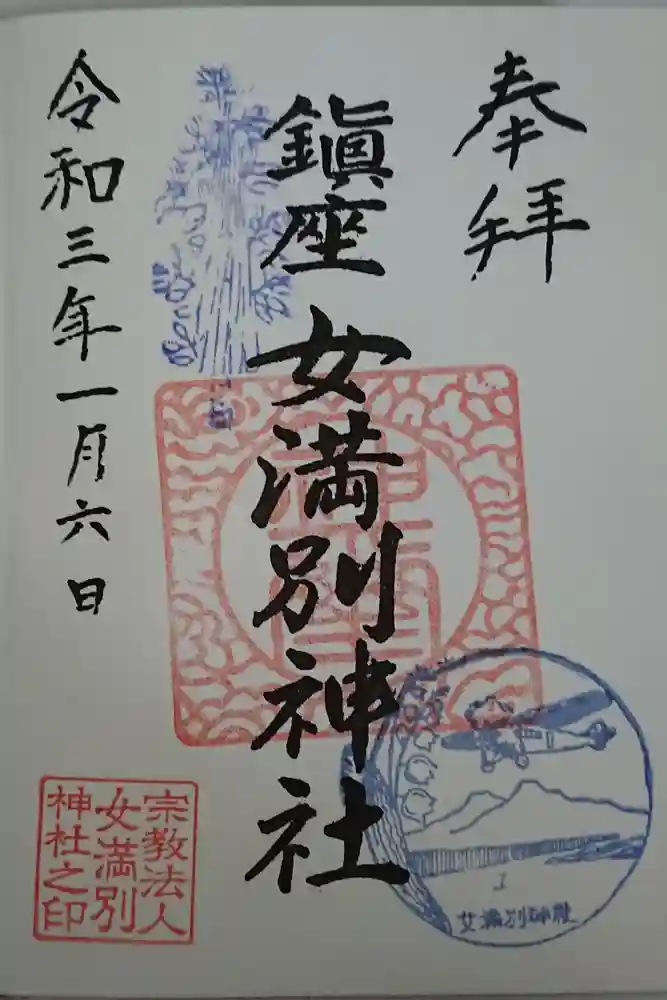 奉拝
鎭座 女満別神社
令和三年一月六日
宗教法人
女満別
神社之印
女満別神社